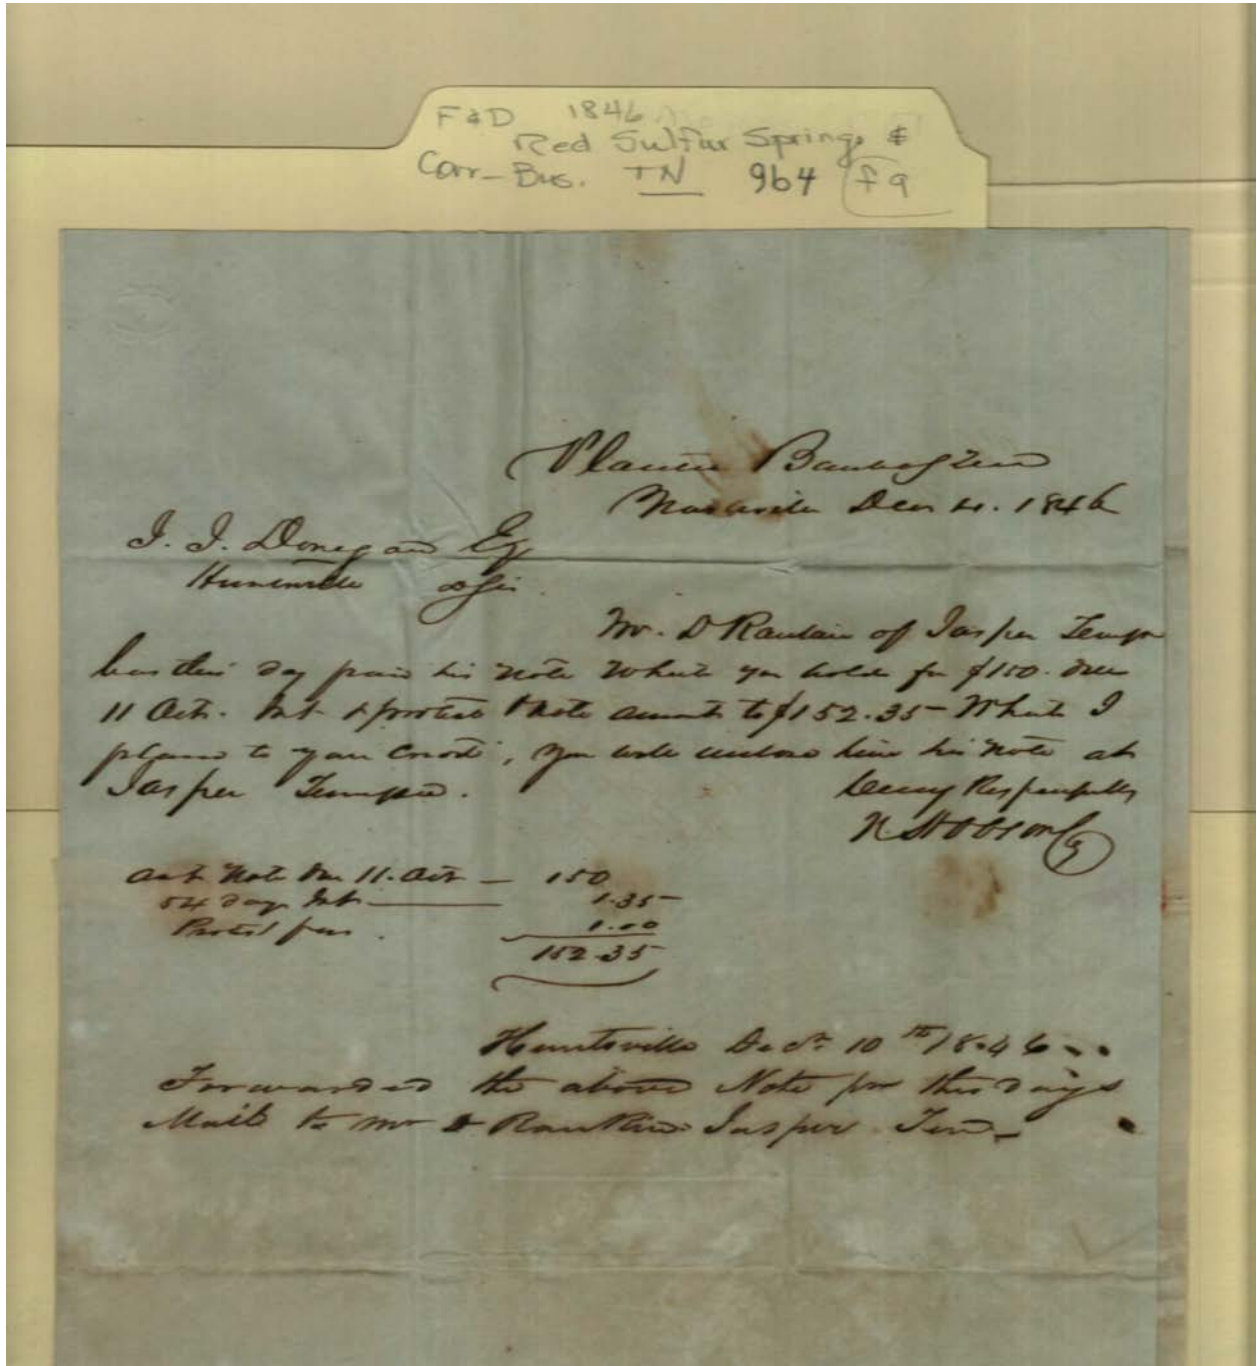 F&D 1846
Red Sulfur Springs &
Corr-Bus. TN 964 f9
Planters Bank of Tenn
Nashville Decr 4. 1846
J. J. Donegan Esq
Huntsville Dr Sir.
Mr. D Rankin of Jasper Tennse
has this day paid his note which you hold for $150. due
11 Octr. Int & protest & note amount to $152.35 which I
place to your Credit, you will enclose him his note at
Jasper Tennsee.
Very Respectfully
N. Hobson C
Amt Note due 11. Octr — 150
54 days Int. — 1.35
Protest fees. 1.00
152.35
Huntsville Decr 10th 1846
Forwarded the above Note per this days
Mail to Mr D Rankin Jasper Ten